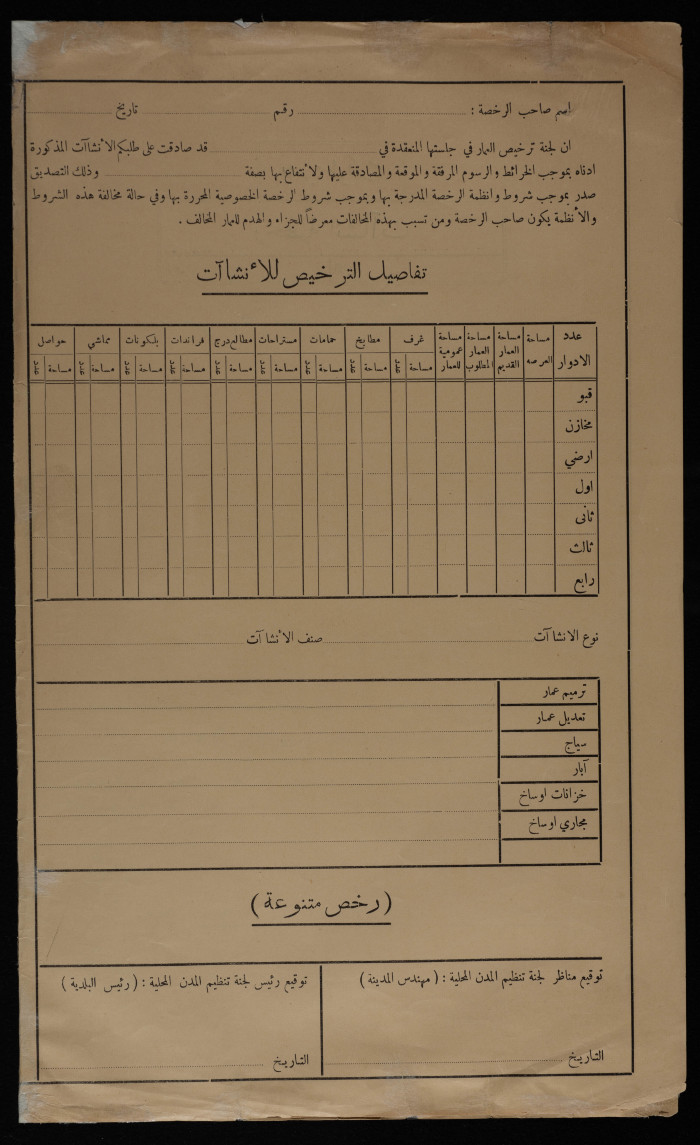 اسم صاحب الرخصة : رقم تاريخ
ان لجنة ترخيص العمار في جلستها المنعقدة في قد صادقت على طلبكم الأنشاآت المذكورة
ادناه بموجب الخرائط والرسوم المرفقة والموقعة والمصادقة عليها ولأنتفاع بها بصفة وذلك التصديق
صدر بموجب شروط وانظمة الرخصة المدرجة بها وبموجب شروط الرخصة الخصوصية المحررة بها وفي حالة مخالفة هذه الشروط
والأنظمة يكون صاحب الرخصة ومن تسبب بهذه المخالفات معرضاً للجزاء والهدم للعمار المخالف .
تفاصيل الترخيص للأنشاآت
عدد الادوار مساحة العرصه مساحة العمار القديم مساحة العمار المطلوب مساحة عمومية للعمار غرف مطابخ حمامات مستراحات مطالع درج فراندات بلكونات مماشي حواصل
مساحة عدد مساحة عدد مساحة عدد مساحة عدد مساحة عدد مساحة عدد مساحة عدد مساحة عدد مساحة عدد
قبو
مخازن
ارضي
اول
ثانى
ثالث
رابع
نوع الانشاآت صنف الأنشاآت
ترميم عمار
تعديل عمار
سياج
آبار
خزانات اوساخ
مجاري اوساخ
( رخص متنوعة )
توقيع مناظر لجنة تنظيم المدن المحلية : ( مهندس المدينة )
التاريخ
توقيع رئيس لجنة تنظيم المدن المحلية : ( رئيس البلدية )
التاريخ